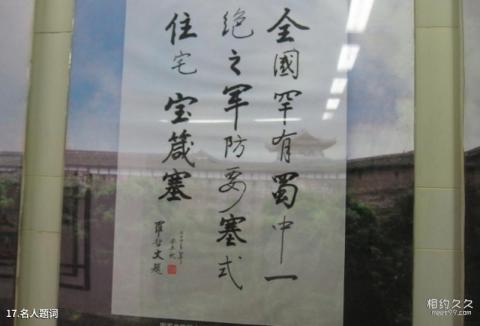 全國罕有蜀中一
绝之军防要塞式
住宅宝箴塞
羅哲文題
17.名人题词
相约久久
meet99.com